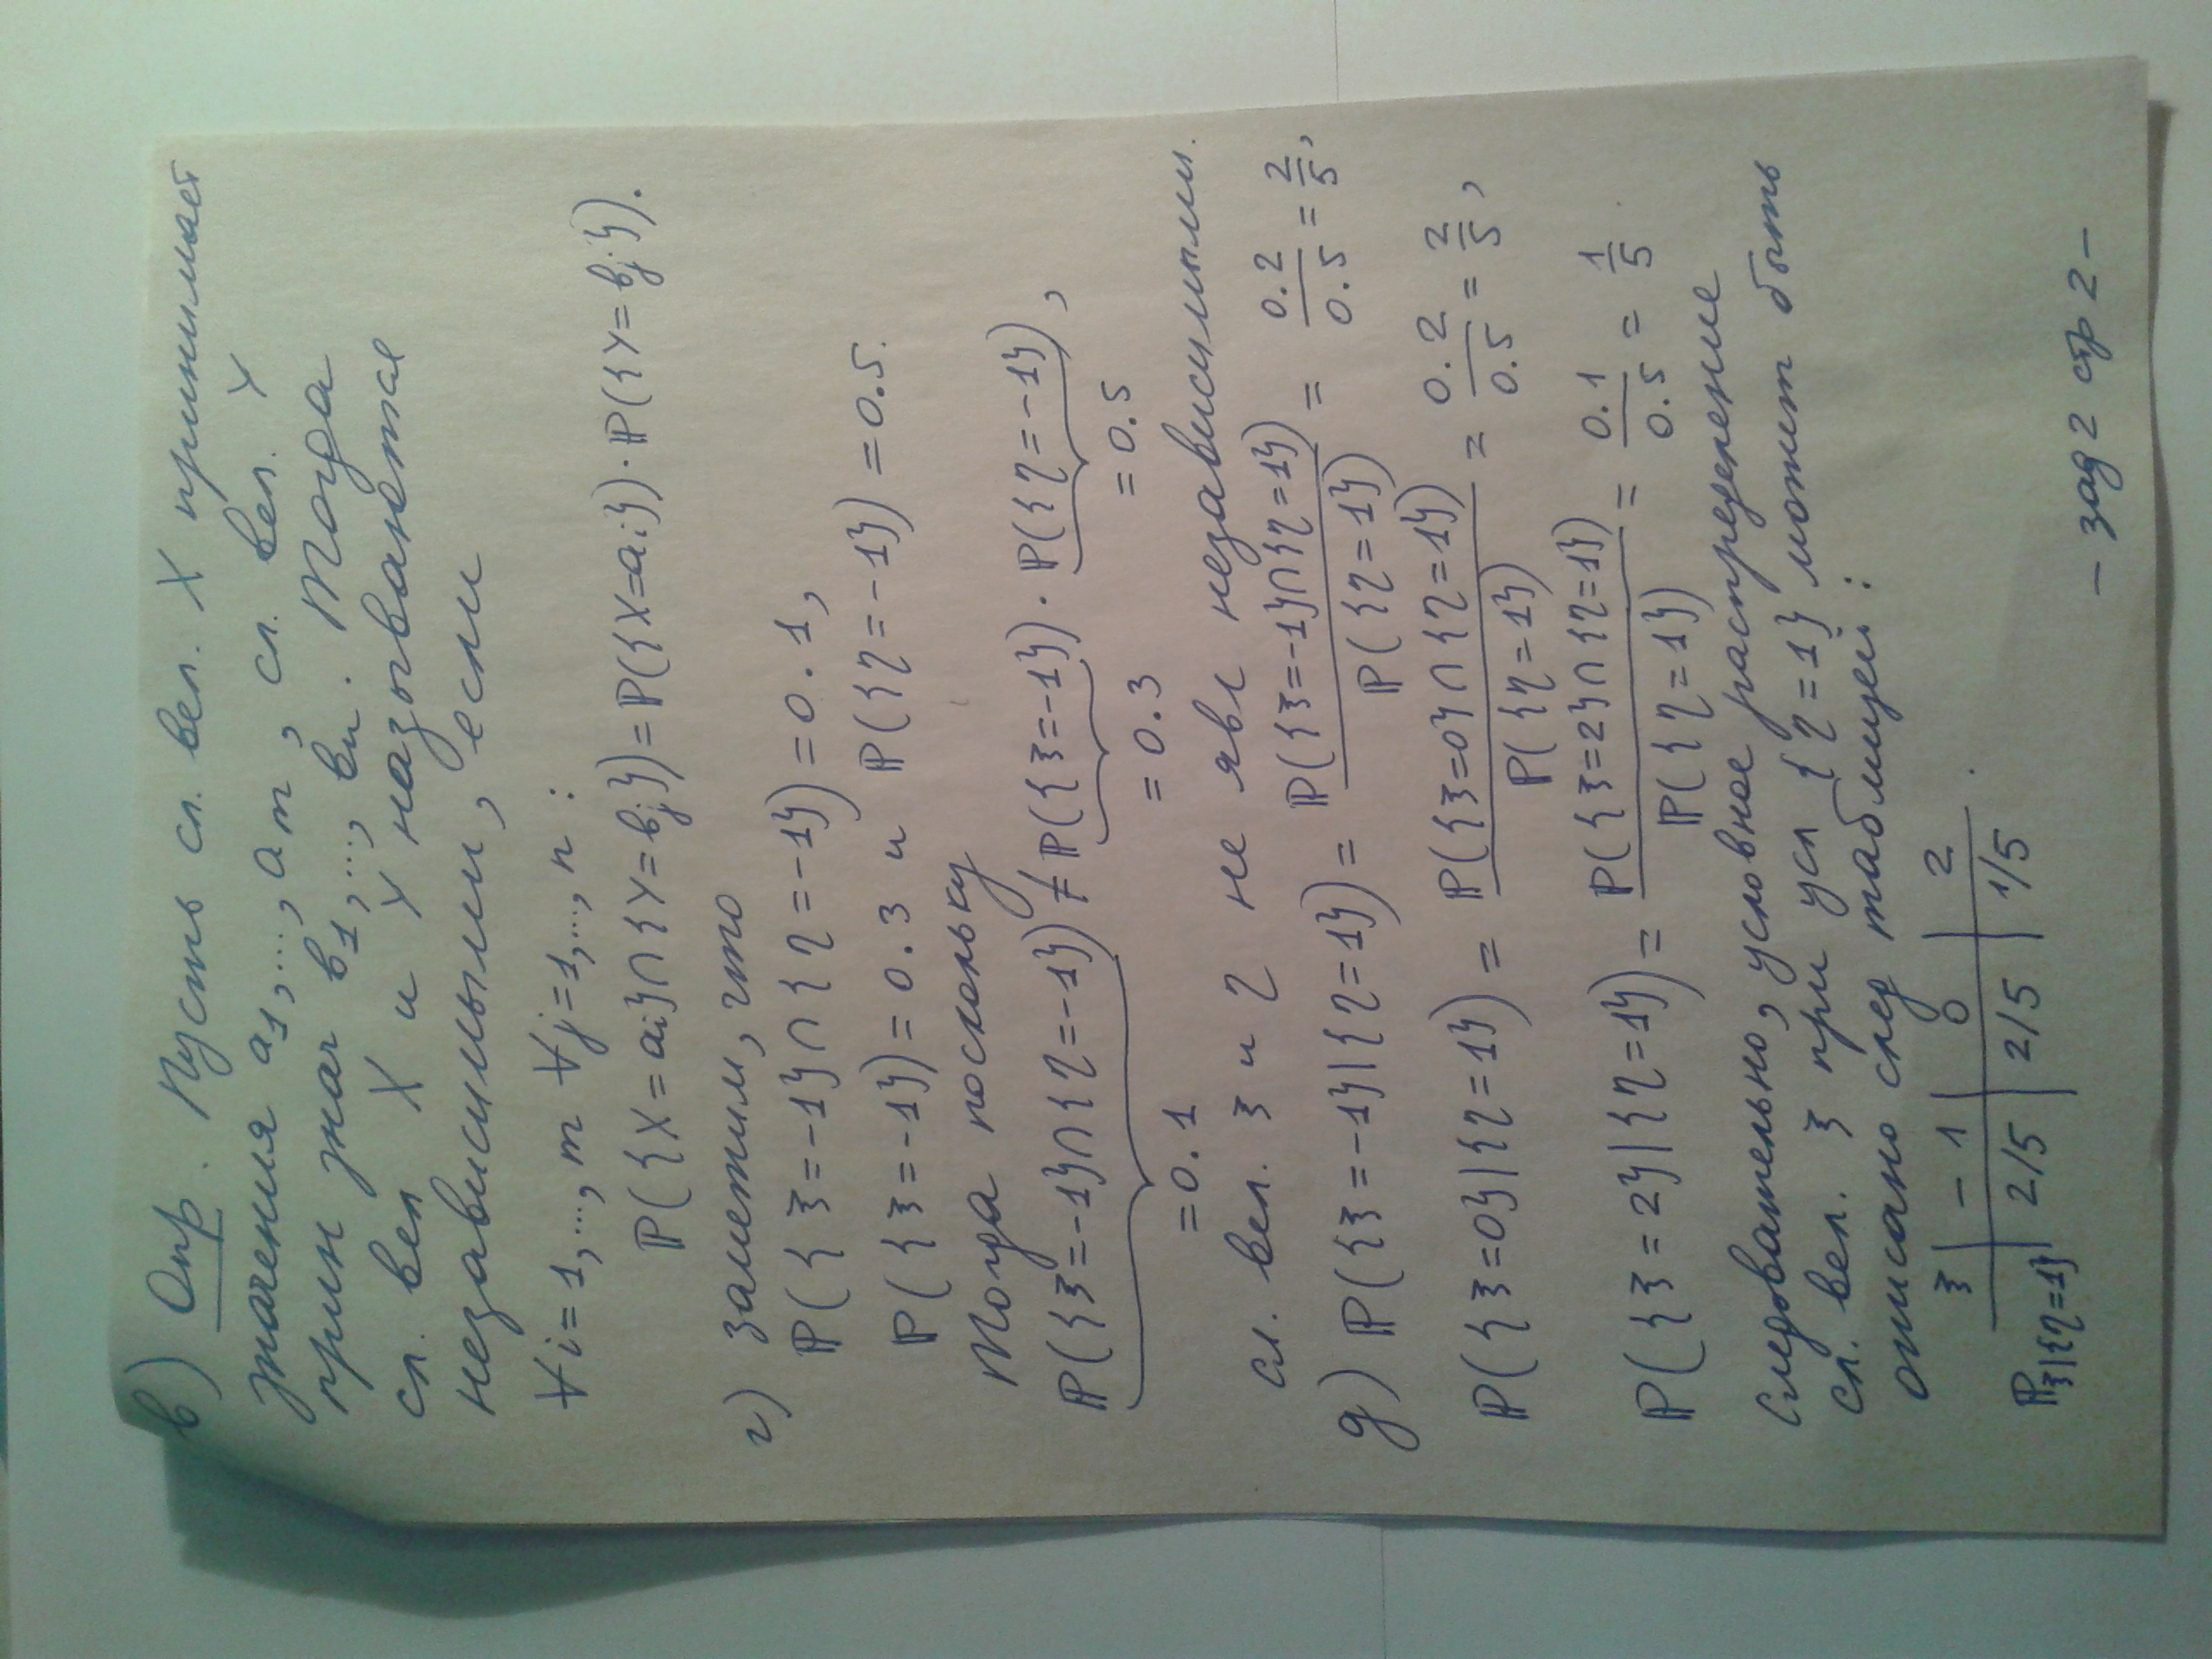 в) Опр. Пусть сл. вел. X принимает
значения a₁,..., aₘ, сл. вел. Y
прин знач в₁,..., вₙ. Тогда
сл. вел X и Y называются
независимыми, если
∀i=1,..., m ∀j=1,..., n :
ℙ({X=aᵢ}∩{Y=вⱼ})=ℙ({X=aᵢ})·ℙ({Y=вⱼ}).
г) заметим, что
ℙ({ξ=-1}∩{η=-1})=0.1,
ℙ({ξ=-1})=0.3 и ℙ({η=-1})=0.5.
Тогда поскольку
ℙ({ξ=-1}∩{η=-1}) ≠ ℙ({ξ=-1}) · ℙ({η=-1}),
=0.1 =0.3 =0.5
сл. вел. ξ и η не явл независимыми.
д) ℙ({ξ=-1}|{η=1}) = ℙ({ξ=-1}∩{η=1}) / ℙ({η=1}) = 0.2/0.5 = 2/5,
ℙ({ξ=0}|{η=1}) = ℙ({ξ=0}∩{η=1}) / ℙ({η=1}) = 0.2/0.5 = 2/5,
ℙ({ξ=2}|{η=1}) = ℙ({ξ=2}∩{η=1}) / ℙ({η=1}) = 0.1/0.5 = 1/5
Следовательно, условное распределение
сл. вел. ξ при усл {η=1} может быть
описано след таблицей:
ξ | -1 | 0 | 2
ℙ_ξ|{η=1} | 2/5 | 2/5 | 1/5 .
- зад 2 стр 2 -